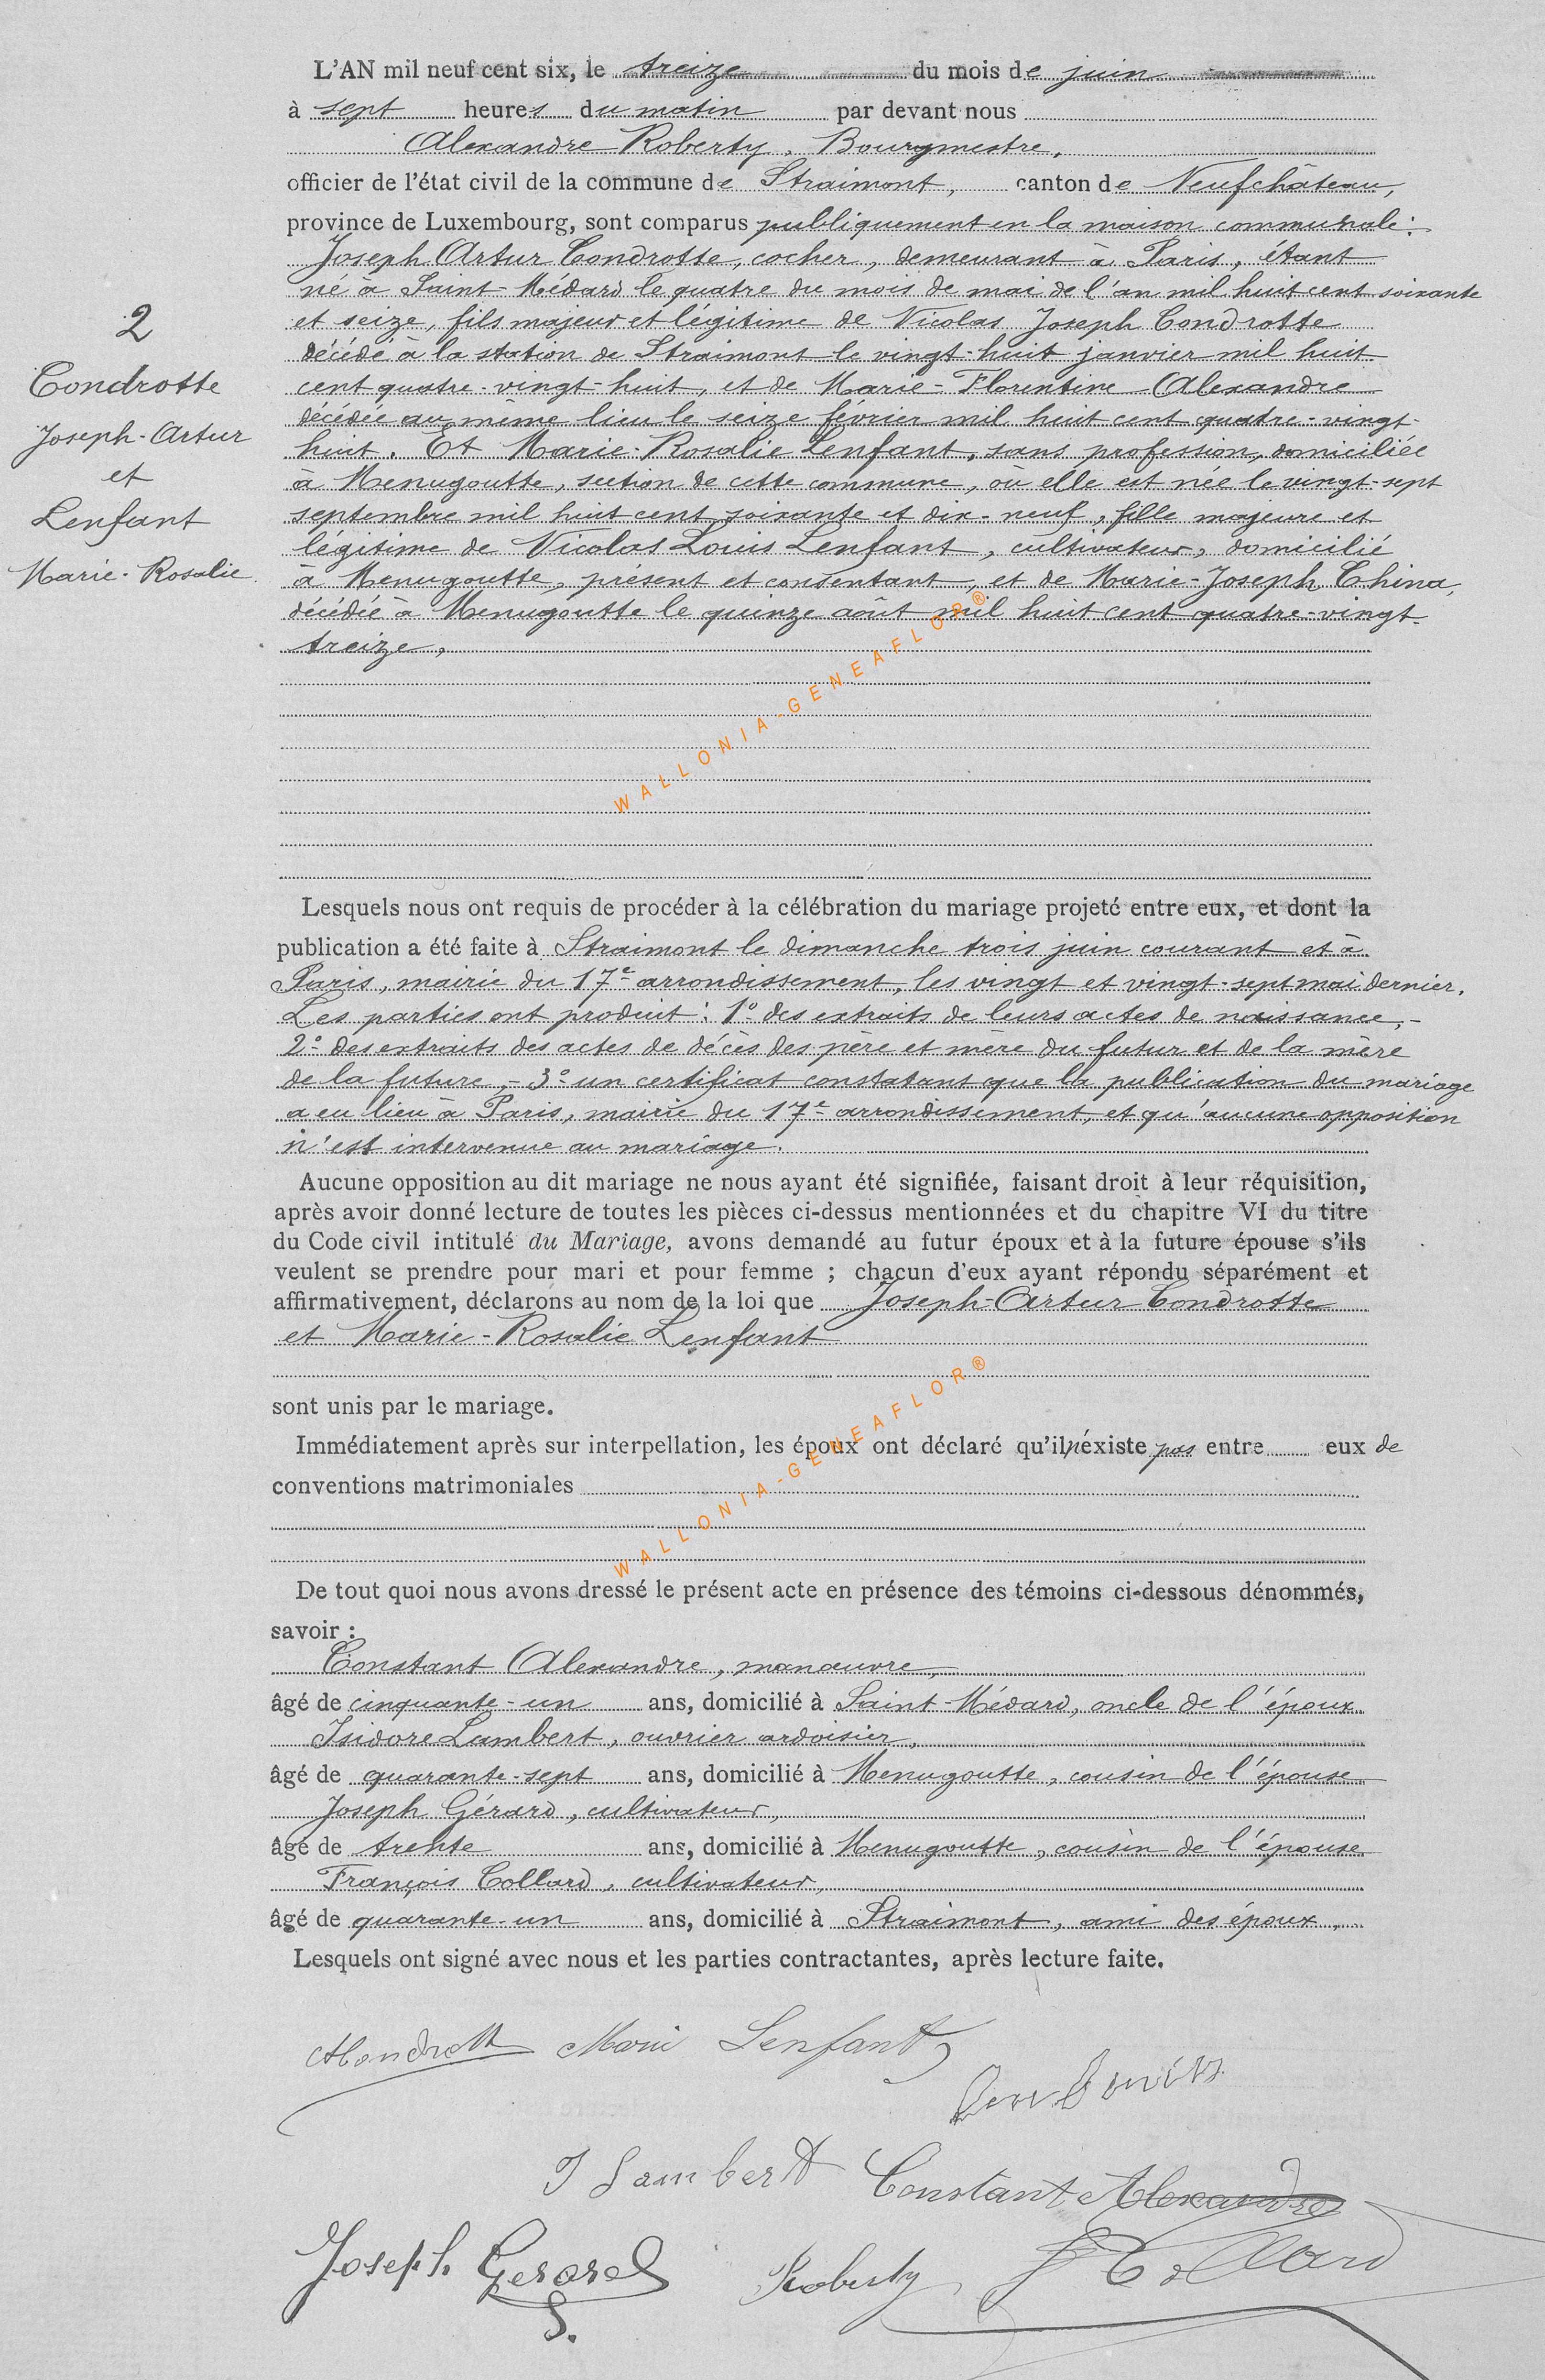 L'AN mil neuf cent six, le treize du mois de juin
à sept heures du matin par devant nous
Alexandre Roberty, Bourgmestre,
officier de l'état civil de la commune de Straimont, canton de Neufchâteau,
province de Luxembourg, sont comparus publiquement en la maison communale:
Joseph Artur Condrotte, cocher, demeurant à Paris, étant
né à Saint-Médard le quatre du mois de mai de l'an mil huit cent soixante
et seize, fils majeur et légitime de Nicolas Joseph Condrotte
décédé à la station de Straimont le vingt-huit janvier mil huit
cent quatre-vingt-huit, et de Marie-Florentine Alexandre
décédée au même lieu le seize février mil huit cent quatre-vingt-
huit. Et Marie-Rosalie Lenfant, sans profession, domiciliée
à Menugoutte, section de cette commune, où elle est née le vingt-sept
septembre mil huit cent soixante et dix-neuf, fille majeure et
légitime de Nicolas Louis Lenfant, cultivateur, domicilié
à Menugoutte, présent et consentant, et de Marie-Joseph China,
décédée à Menugoutte le quinze août mil huit cent quatre-vingt-
treize,
2
Condrotte
Joseph-Artur
et
Lenfant
Marie-Rosalie.
WALLONIA-GENEAFLOR®
Lesquels nous ont requis de procéder à la célébration du mariage projeté entre eux, et dont la
publication a été faite à Straimont le dimanche trois juin courant et à
Paris, mairie du 17e arrondissement, les vingt et vingt-sept mai dernier.
Les parties ont produit: 1° des extraits de leurs actes de naissance,-
2° des extraits des actes de décès des père et mère du futur et de la mère
de la future,- 3° un certificat constatant que la publication du mariage
a eu lieu à Paris, mairie du 17e arrondissement, et qu'aucune opposition
n'est intervenue au mariage.
Aucune opposition au dit mariage ne nous ayant été signifiée, faisant droit à leur réquisition,
après avoir donné lecture de toutes les pièces ci-dessus mentionnées et du chapitre VI du titre
du Code civil intitulé du Mariage, avons demandé au futur époux et à la future épouse s'ils
veulent se prendre pour mari et pour femme ; chacun d'eux ayant répondu séparément et
affirmativement, déclarons au nom de la loi que Joseph-Artur Condrotte
et Marie-Rosalie Lenfant
sont unis par le mariage.
Immédiatement après sur interpellation, les époux ont déclaré qu'il n'éxiste pas entre eux de
conventions matrimoniales
WALLONIA-GENEAFLOR®
De tout quoi nous avons dressé le présent acte en présence des témoins ci-dessous dénommés,
savoir :
Constant Alexandre, manœuvre,
âgé de cinquante-un ans, domicilié à Saint-Médard, oncle de l'époux
Isidore Lambert, ouvrier ardoisier,
âgé de quarante-sept ans, domicilié à Menugoutte, cousin de l'épouse
Joseph Gérard, cultivateur,
âgé de trente ans, domicilié à Menugoutte, cousin de l'épouse
François Collard, cultivateur,
âgé de quarante-un ans, domicilié à Straimont, ami des époux,
Lesquels ont signé avec nous et les parties contractantes, après lecture faite.
ACondrott Marie Lenfant
I Lambert Constant Alexandre
Joseph Gerard Roberty F Collard